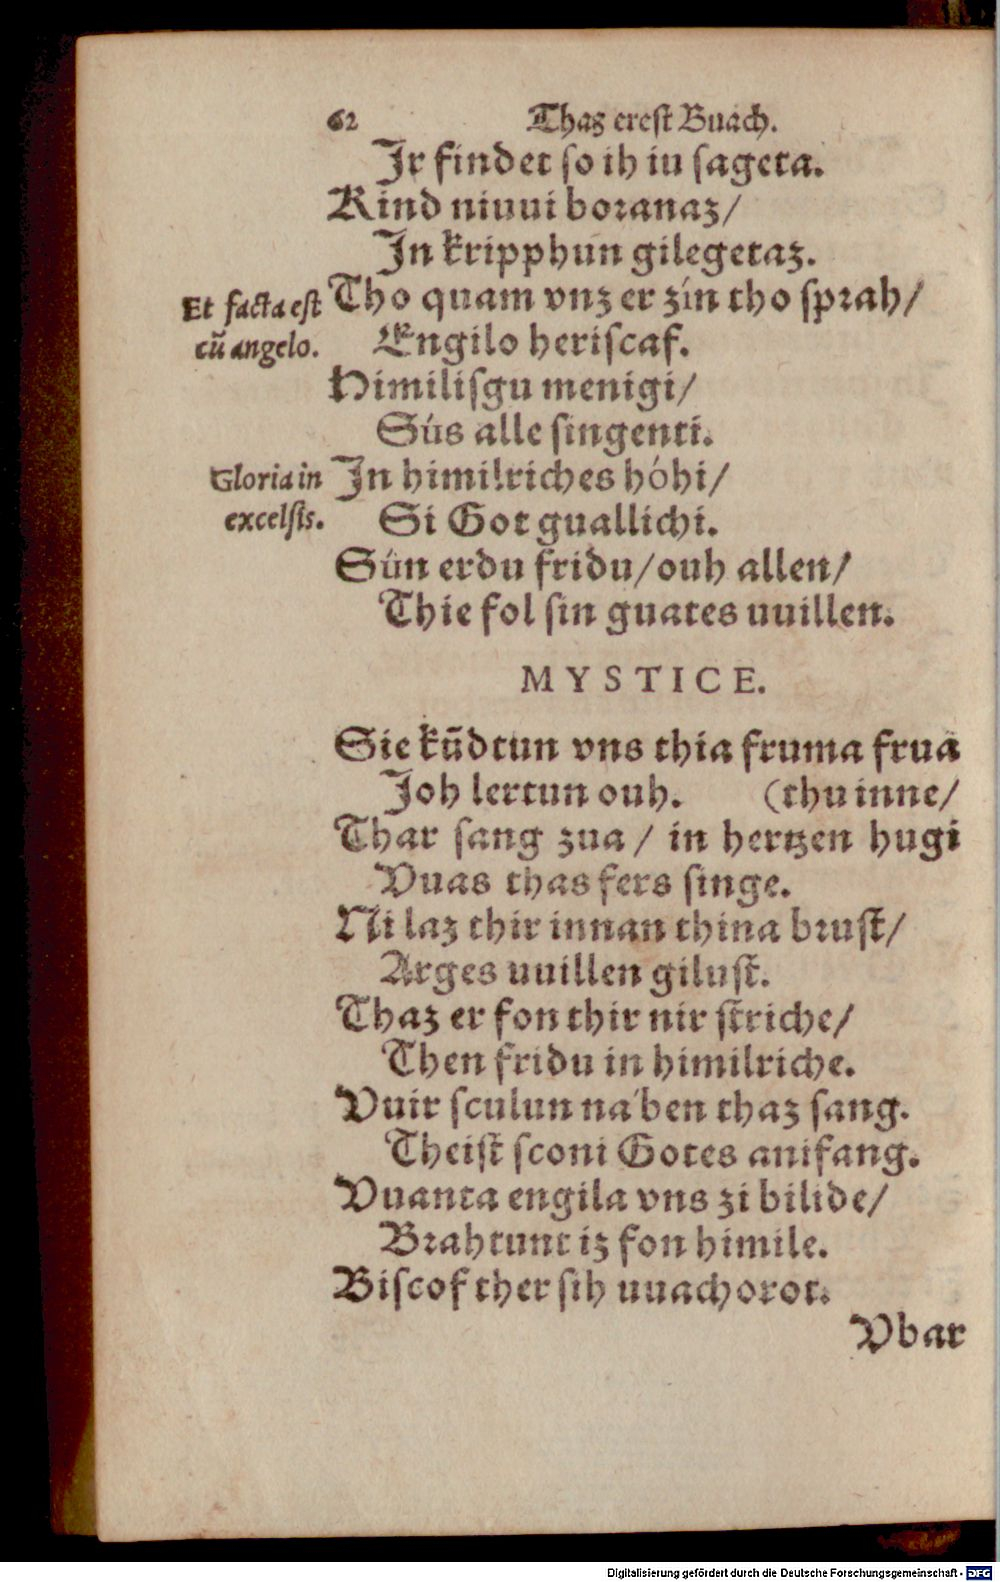 62 Thaz erest Buach.
Jr findet so ih iu sageta.
Kind niuui boranaz/
Jn kripphun gilegetaz.
Et facta est
cũ angelo.
Tho quam vnz er zín tho sprah/
Engilo heriscaf.
Himilisgu menigi/
Sús alle singenti.
Gloria in
excelsis.
Jn himilriches hóhi/
Si Got guallichi.
Sûn erdu fridu/ouh allen/
Thie fol sin guates uuillen.
MYSTICE.
Sie kũdtun vns thia fruma frua
Joh lertun ouh. (thu inne/
Thar sang zua/ in hertzen hugi
Vuas thas fers singe.
Ni laz thir innan thina brust/
Arges uuillen gilust.
Thaz er fon thir nir striche/
Then fridu in himilriche.
Vuir sculun na'ben thaz sang.
Theist sconi Gotes anifang.
Vuanta engila vns zi bilide/
Brahtunt iz fon himile.
Biscof ther sih uuachorot.
Vbar
Digitalisierung gefördert durch die Deutsche Forschungsgemeinschaft - DFG